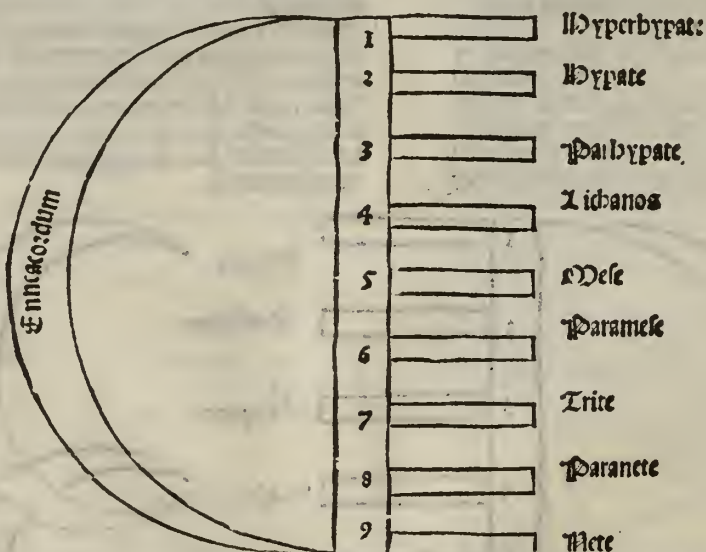 Enneacordum
1 Hyperhypate
2 Hypate
3 Parhypate
4 Lichanos
5 Mese
6 Paramese
7 Trite
8 Paranete
9 Nete